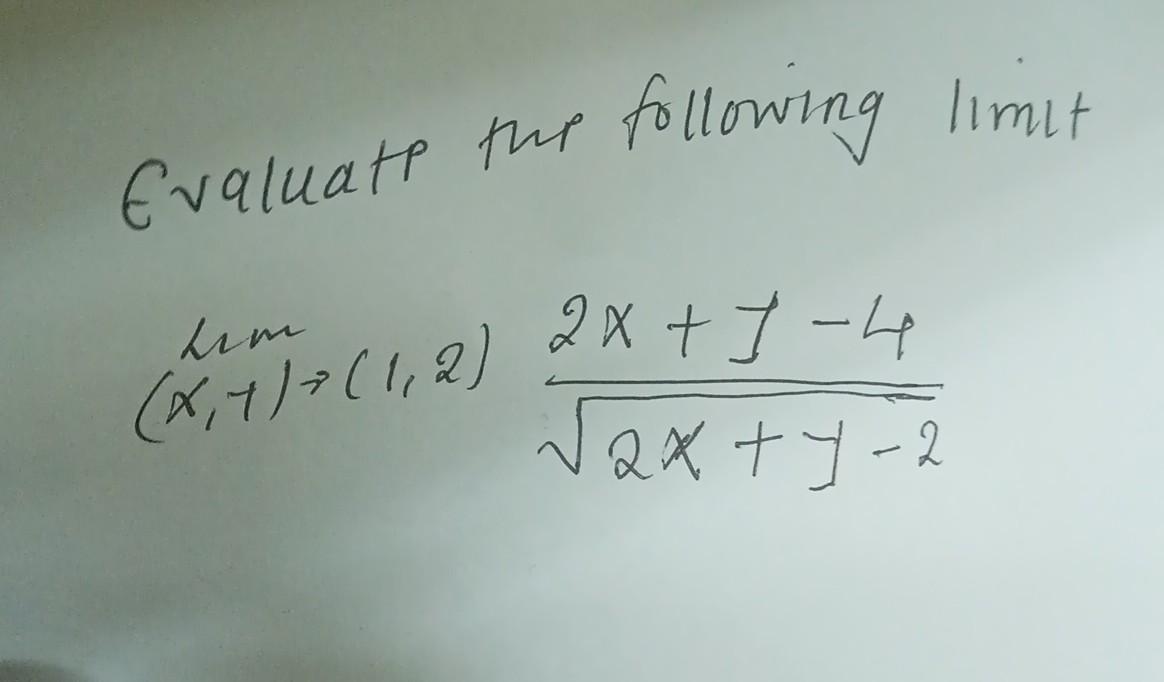 Evaluate the following limit
lim 2x + y - 4
(x,y)→(1,2) √2x + y - 2